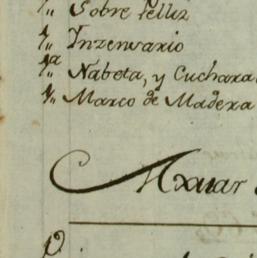 1,, Sobre pelliz
1,, Inzensario
1a,, Nabeta, y Cuchara
1,, Marco de Madera
Axuar